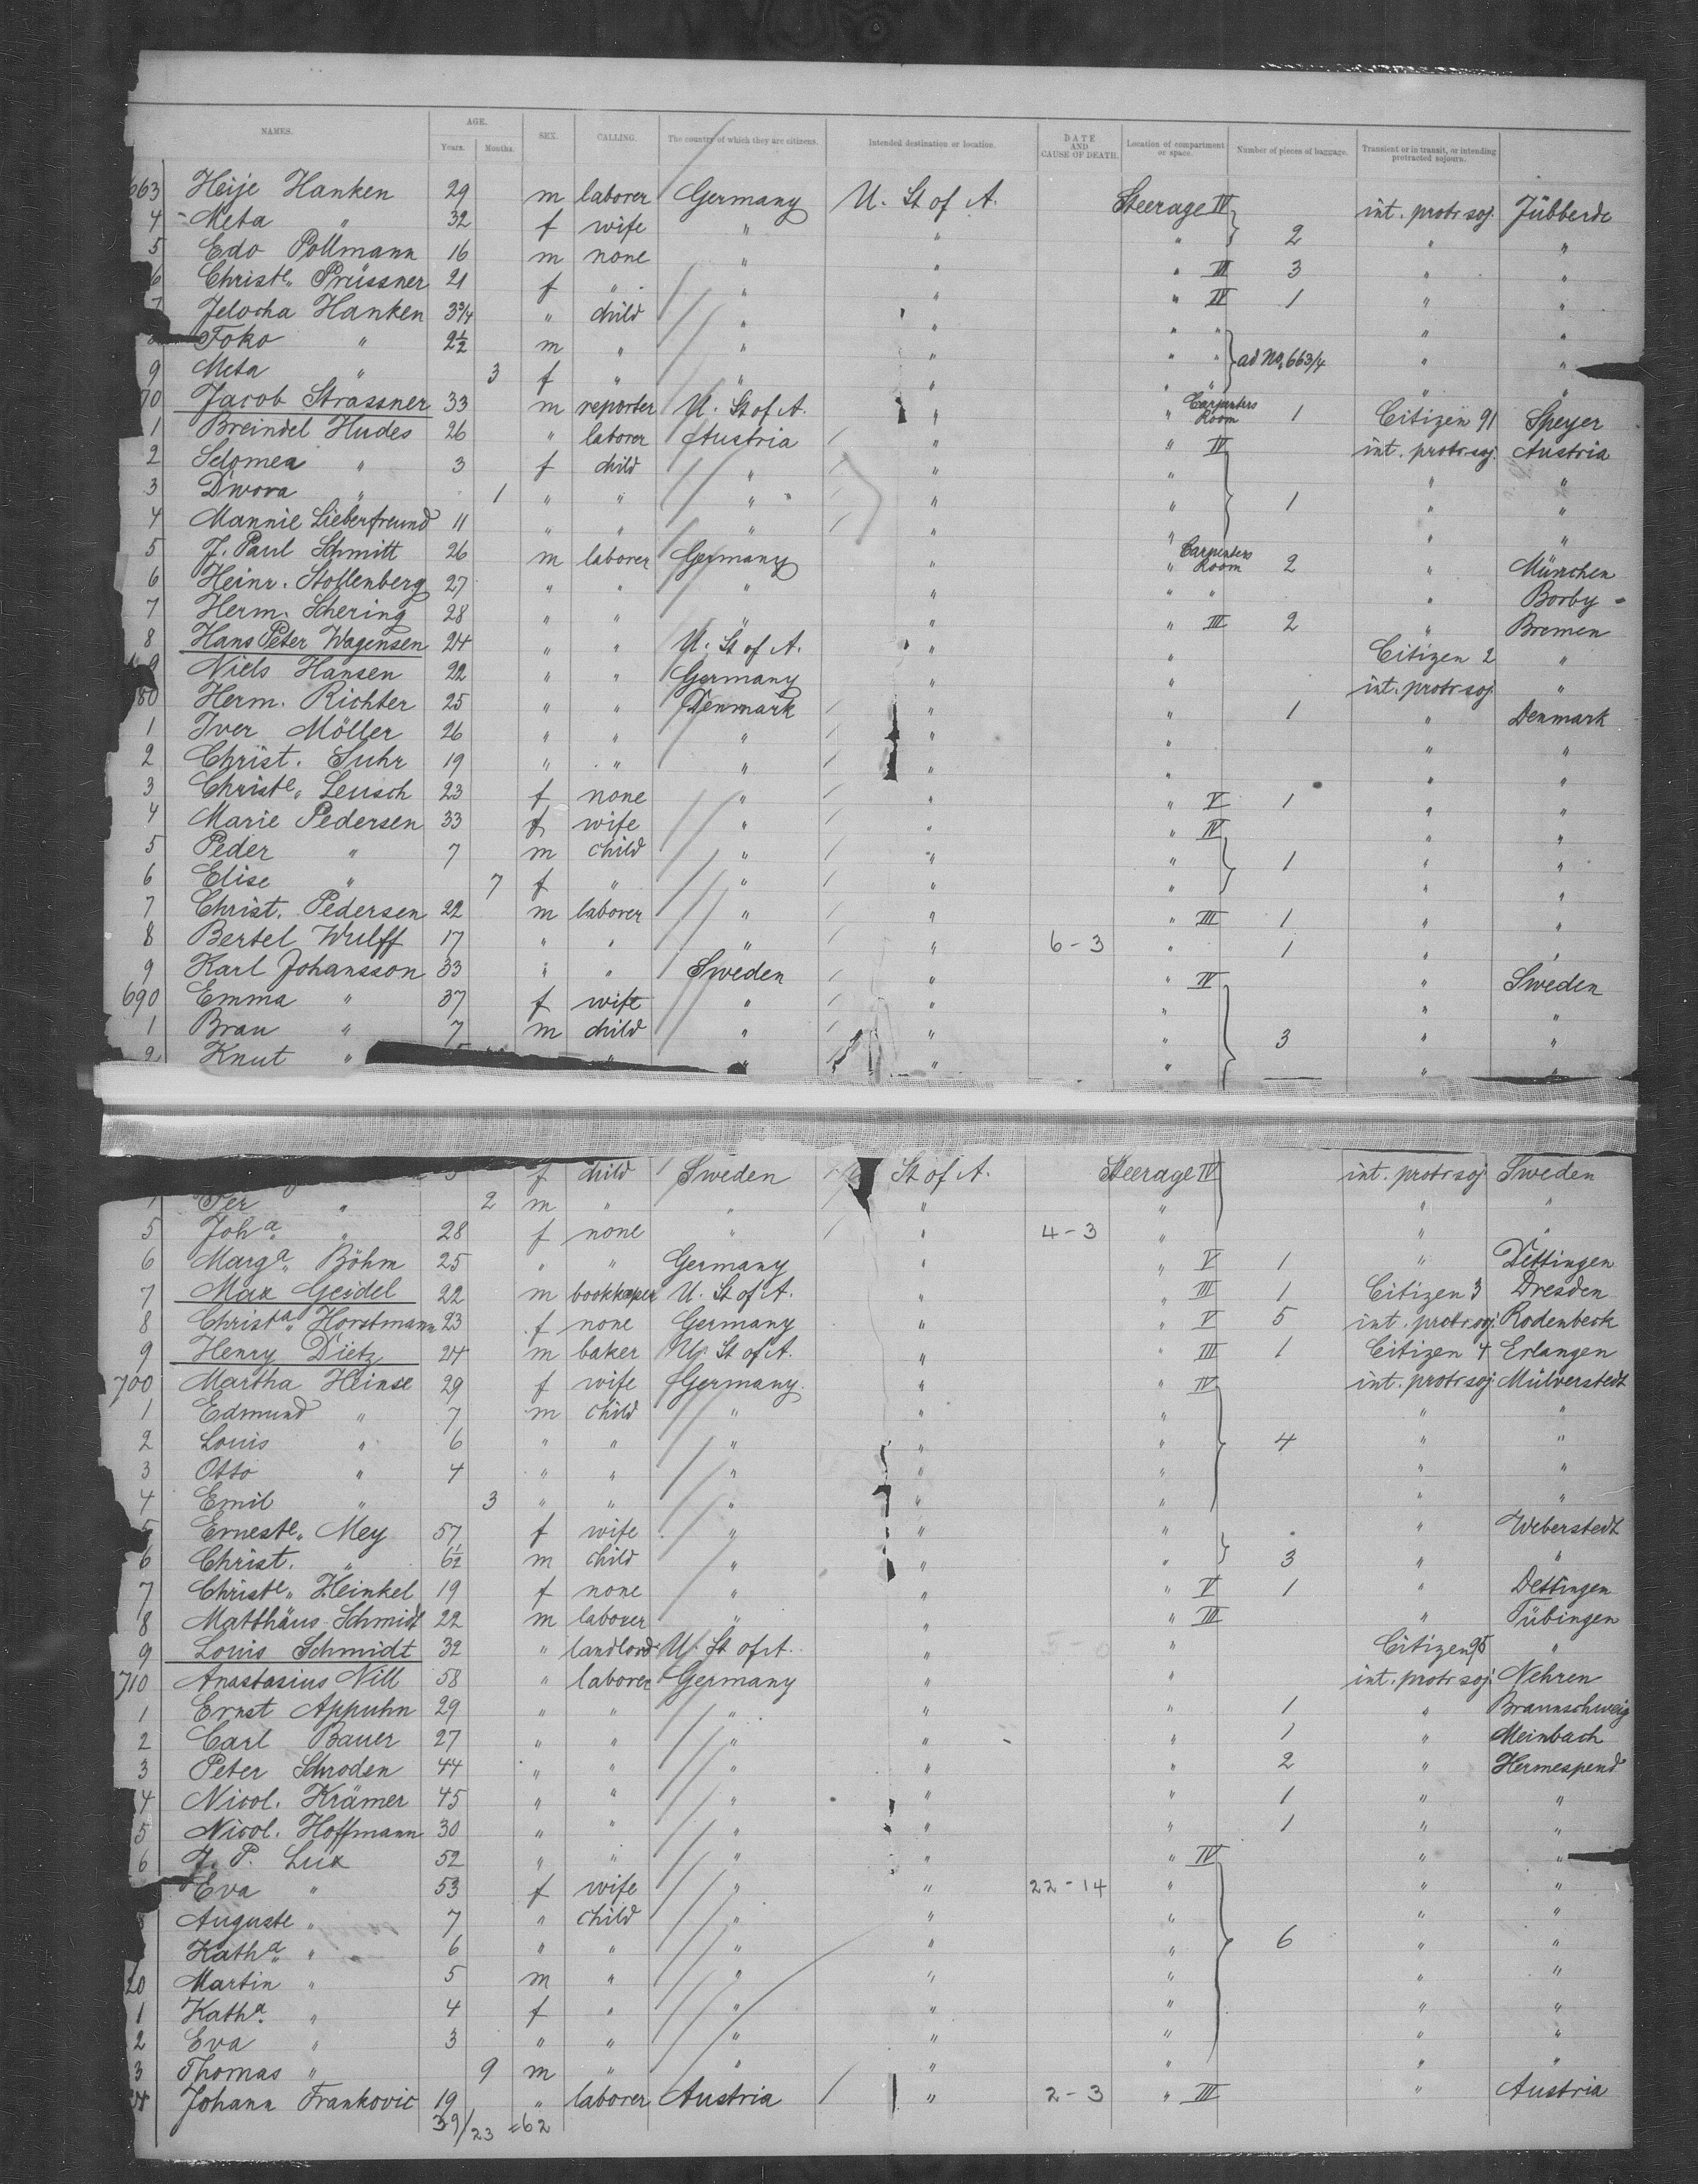 NAMES. AGE. Years. Months. SEX. CALLING. The country of which they are citizens. Intended destination or location. DATE AND CAUSE OF DEATH. Location of compartment or space. Number of pieces of baggage. Transient or in transit, or intending protracted sojourn.
663 Heije Hanken 29 m laborer Germany U. St of A. Steerage IV int. protr soj. Jübberde
4 Meta " 32 f wife " " " 2 " "
5 Edo Pollmann 16 m none " " " III 3 " "
6 Christe. Prüssner 21 f " " " " IV 1 " "
7 Jelocha Hanken 3 3/4 " child " " " " " "
Foko " 2 1/2 m " " " " " ad No. 663/4 " "
9 Meta " 3 f " " " " " " "
70 Jacob Strassner 33 m reporter U. St of A. " " Carpenters Room 1 Citizen 91 Speyer
1 Breindel Hudes 26 " laborer Austria " " IV int. protr soj. Austria
2 Selomea " 3 f child " " " " "
3 Dwora " 1 " " " " " 1 " "
4 Mannie Lieberfreund 11 " " " " " " "
5 J. Paul Schmitt 26 m laborer Germany " " Carpenters Room 2 " München
6 Heinr. Stollenberg 27 " " " " " " " Borby
7 Herm. Schering 28 " " " " " III 2 " Bremen
8 Hans Peter Wagensen 24 " " U. St of A. " " Citizen 2 "
9 Niels Hansen 22 " " Germany " " int. protr soj. "
80 Herm. Richter 25 " " Denmark " " 1 " Denmark
1 Iver Möller 26 " " " " " " "
2 Christ. Suhr 19 " " " " " " "
3 Christe. Leusch 23 f none " " " V 1 " "
4 Marie Pedersen 33 f wife " " " IV " "
5 Peder " 7 m child " " " 1 " "
6 Elise " 7 f " " " " " "
7 Christ. Pedersen 22 m laborer " " " III 1 " "
8 Bertel Wulff 17 " " " " 6-3 " 1 " "
9 Karl Johansson 33 " " Sweden " " IV " Sweden
690 Emma " 37 f wife " " " " "
1 Bran " 7 m child " " " 3 " "
2 Knut " " " " " " "
f child Sweden St of A. Steerage IV int. protr soj Sweden
Per " 2 m " " " " " "
5 Joha. " 28 f none " " 4-3 " " "
6 Marga. Böhm 25 " " Germany " " V 1 " Dettingen
7 Max Geidel 22 m bookkeper U. St of A. " " III 1 Citizen 3 Dresden
8 Christa. Horstmann 23 f none Germany " " V 5 int. protr soj. Rodenbeck
9 Henry Dietz 24 m baker U. St of A. " " III 1 Citizen 4 Erlangen
700 Martha Heinse 29 f wife Germany " " IV int. protr soj. Mülverstedt
1 Edmund " 7 m child " " " " "
2 Louis " 6 " " " " " 4 " "
3 Otto " 4 " " " " " " "
4 Emil " 3 " " " " " " "
5 Erneste. Mey 57 f wife " " " " Weberstedt
6 Christ. " 6 1/2 m child " " " 3 " "
7 Christe. Heinkel 19 f none " " " V 1 " Dettingen
8 Matthäus Schmidt 22 m laborer " " " III " Tübingen
9 Louis Schmidt 32 " landlord U. St of A. " " Citizen 95 "
710 Anastasius Nill 58 " laborer Germany " " int. protr soj. Nehren
1 Ernst Appuhn 29 " " " " " 1 " Braunschweig
2 Carl Bauer 27 " " " " " 1 " Meinbach
3 Peter Schroden 44 " " " " " 2 " Hermespend
4 Nicol. Krämer 45 " " " " " 1 " "
5 Nicol. Hoffmann 30 " " " " " 1 " "
6 J. P. Lux 52 " " " " " IV " "
Eva " 53 f wife " " 22-14 " " "
8 Auguste " 7 " child " " " " "
Katha. " 6 " " " " " 6 " "
20 Martin " 5 m " " " " " "
1 Katha. " 4 f " " " " " "
2 Eva " 3 " " " " " " "
3 Thomas " 9 m " " " " " "
24 Johann Frankovic 19 " laborer Austria " 2-3 " III " Austria
39/23 = 62